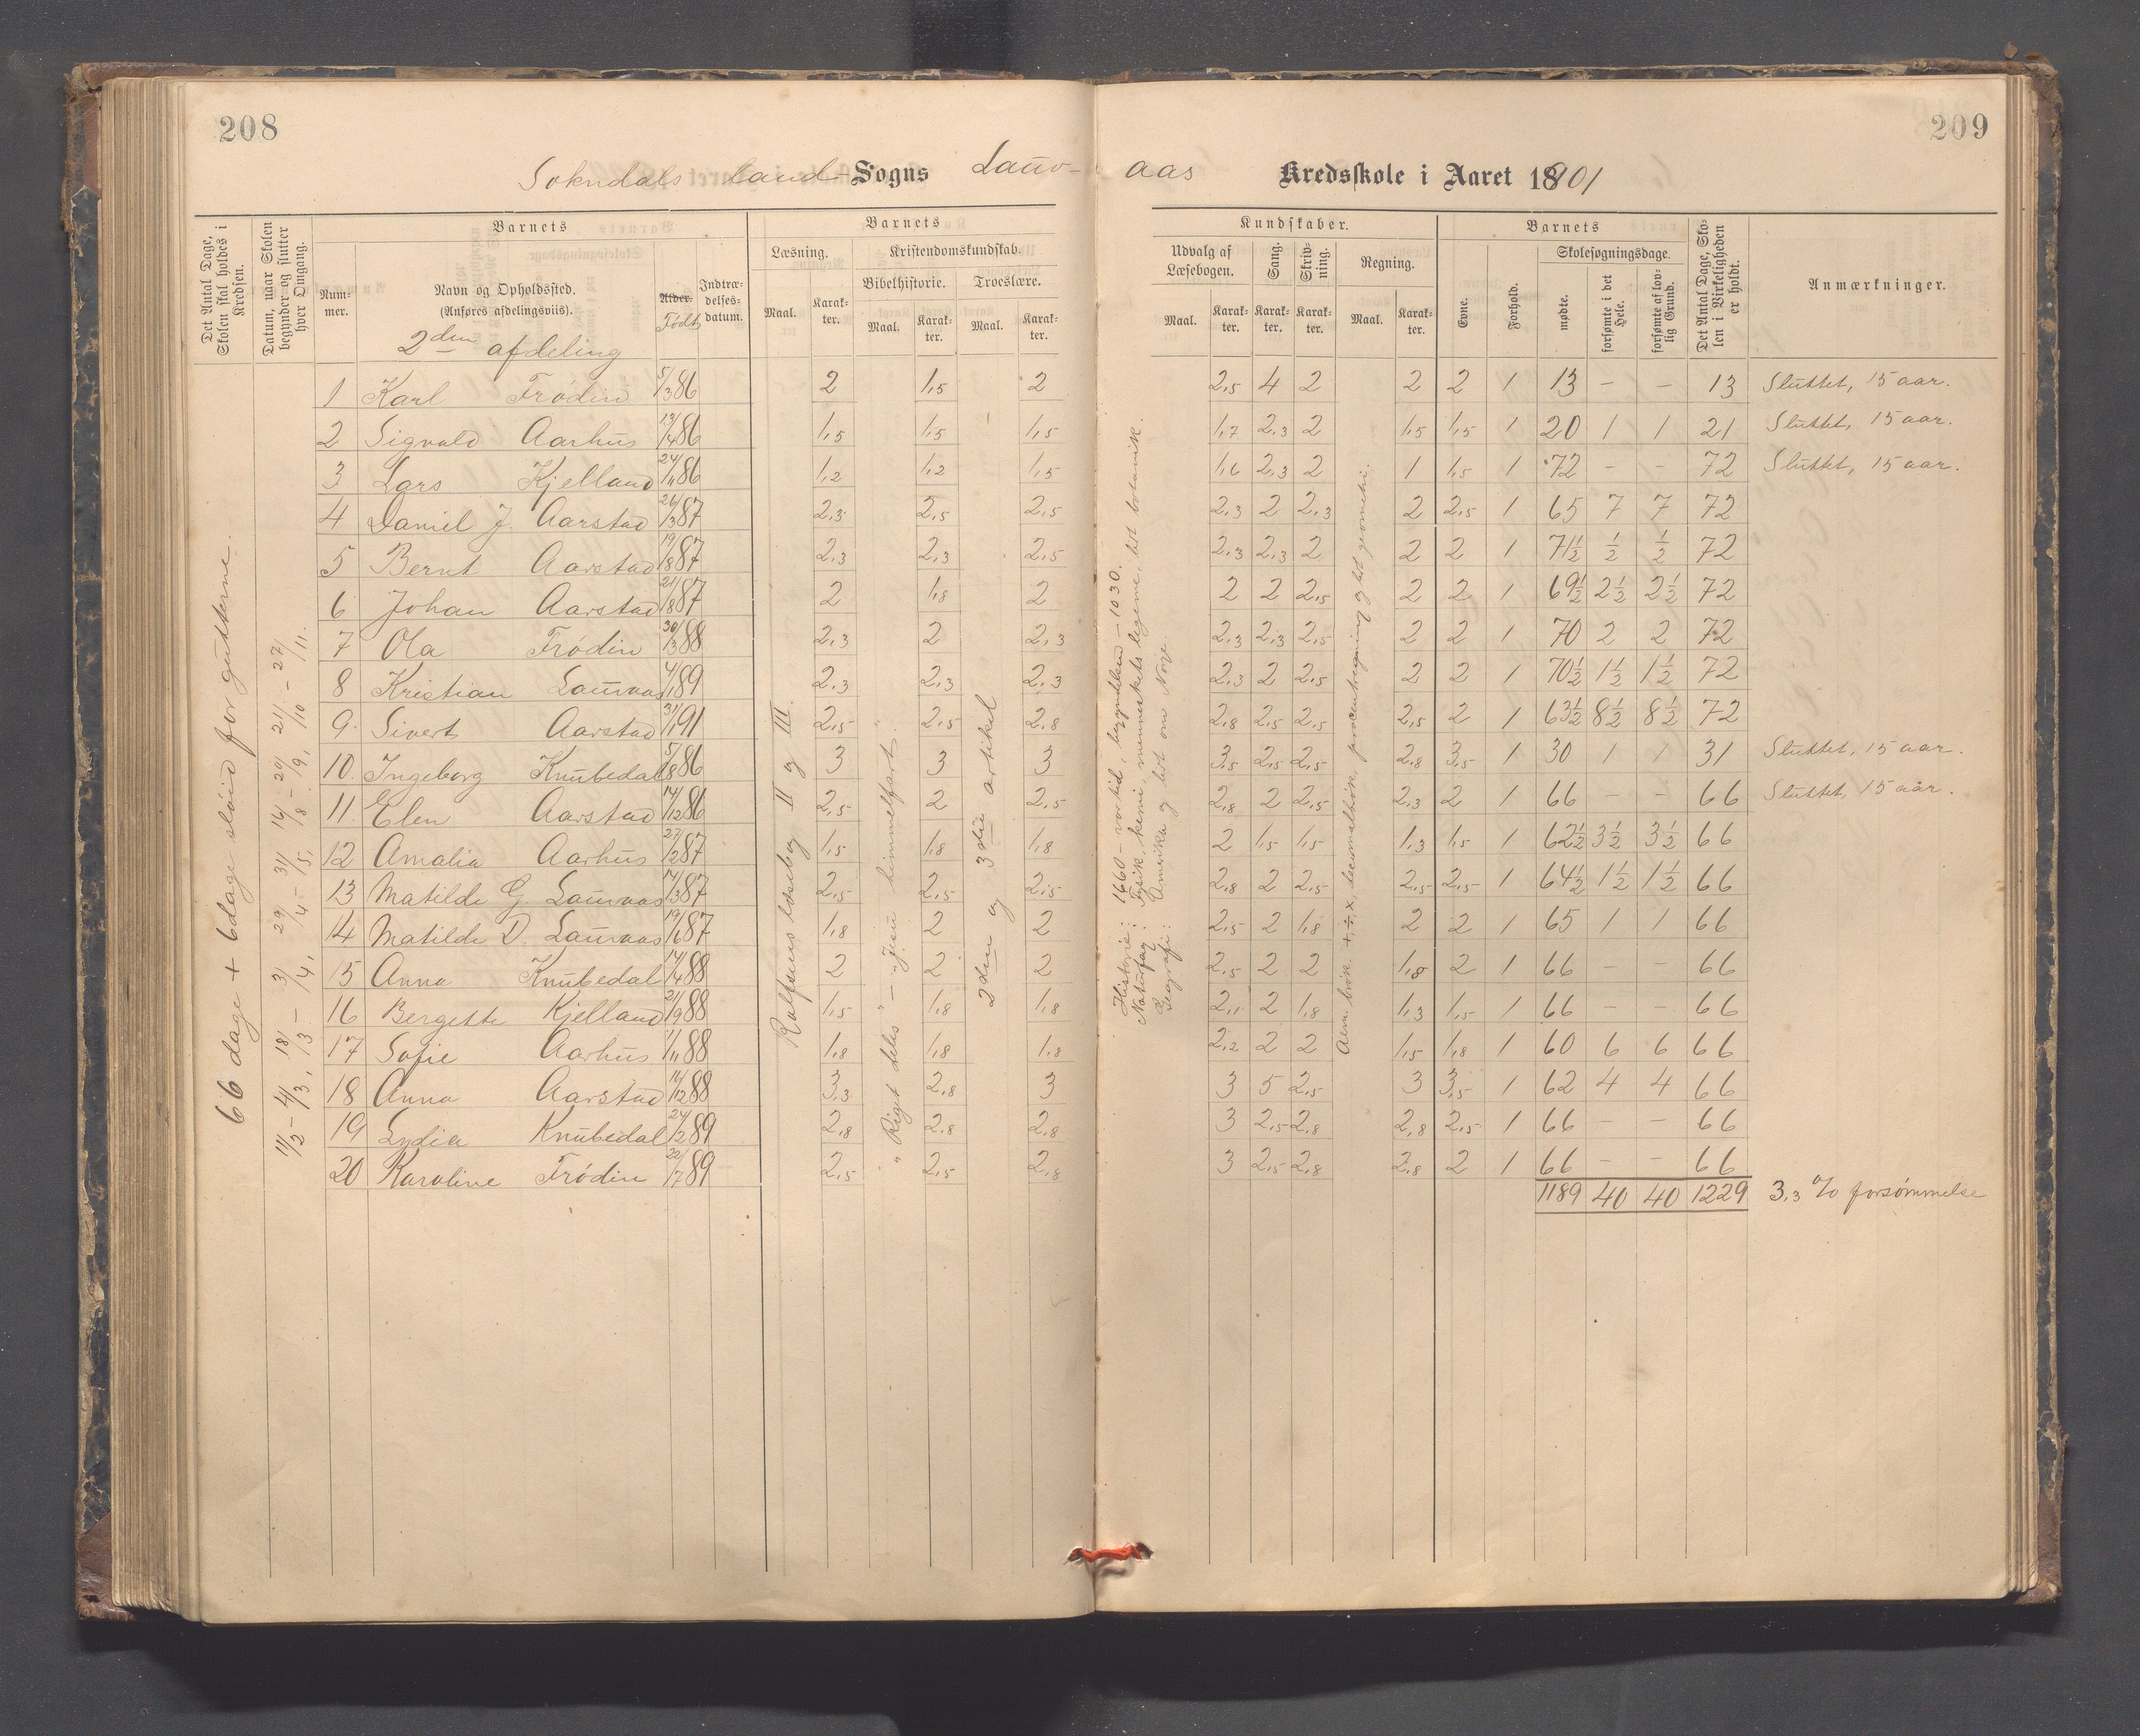 208
209
Sokndals Land-Sogns Lauv-aas Kredsskole i Aaret 1901
Det Antal Dage, Skolen skal holdes i Kredsen.
Datum, naar Skolen begynder og slutter hver Omgang.
Barnets
Num-mer.
Navn og Opholdssted.
(Anføres afdelingsviis).
2den afdeling
Alder. Født
Indtræ-delses-datum.
Barnets
Læsning.
Maal.
Karak-ter.
Kristendomskundskab.
Bibelhistorie.
Maal.
Karak-ter.
Troeslære.
Maal.
Karak-ter.
Kundskaber.
Udvalg af Læsebogen.
Maal.
Karak-ter.
Sang.
Karak-ter.
Skriv-ning.
Karak-ter.
Regning.
Maal.
Karak-ter.
Barnets
Evne.
Forhold.
Skolesøgningsdage.
mødte.
forsømte i det Hele.
forsømte af lov-lig Grund.
Det Antal Dage, Sko-len i Virkeligheden er holdt.
Anmærkninger.
66 dage + 6 dage sløid for guttterne.
11/2 - 4/3, 18/3 - 3/4, 29/4 - 31/5, 14/8 - 20/9, 21/10 - 27/11.
Rolfsens læsebog II og III.
"Riget deles" - "Jesu himmelfart".
2den og 3die artikel
Historie: 1660 - vor tid, begyndelsen - 1030.
Naturfag: Fysik, kemi, menneskets legeme, lidt botanisk.
Geografi: Amerika og lidt om Norge.
Alm. brøk. +, ÷, ×, decimalbrøk, procentregning og lidt geometri.
1 Karl Frödin 5/3 86 2 1,5 2 2,5 4 2 2 2 1 13 - - 13 Sluttet, 15 aar.
2 Sigvald Aarhus 13/4 86 1,5 1,5 1,5 1,7 2,3 2 1,5 1,5 1 20 1 1 21 Sluttet, 15 aar.
3 Lars Kjelland 24/11 86 1,2 1,2 1,5 1,6 2,3 2 1 1,5 1 72 - - 72 Sluttet, 15 aar.
4 Daniel J. Aarstad 26/3 87 2,3 2,5 2,5 2,3 2 2,3 2 2,5 1 65 7 7 72
5 Bernt Aarstad 19/8 87 2,3 2,3 2,5 2,3 2,3 2 2 2 1 71½ ½ ½ 72
6 Johan Aarstad 21/8 87 2 1,8 2 2 2 2,5 2 2 1 69½ 2½ 2½ 72
7 Ola Frödin 30/3 88 2,3 2 2,3 2,3 2,3 2,5 2 2 1 70 2 2 72
8 Kristian Lauvaas 4/1 89 2,3 2,3 2,3 2,3 2 2,5 2 2 1 70½ 1½ 1½ 72
9. Sivert Aarstad 31/1 91 2,5 2,5 2,8 2,8 2,5 2,5 2,5 2 1 63½ 8½ 8½ 72
10. Ingeborg Knubedal 5/8 86 3 3 3 3,5 2,5 2,5 2,8 3,5 1 30 1 1 31 Sluttet, 15 aar.
11. Elen Aarstad 14/12 86 2,5 2 2,5 2,8 2 2,5 2,3 2 1 66 - - 66 Sluttet, 15 aar.
12 Amalia Aarhus 27/2 87 1,5 1,8 1,8 2 1,5 1,5 1,3 1,5 1 62½ 3½ 3½ 66
13 Matilde G. Lauvaas 14/3 87 2,5 2,5 2,5 2,8 2 2,5 2,5 2,5 1 64½ 1½ 1½ 66
14 Matilde D. Lauvaas 19/6 87 1,8 2 2 2,5 2 1,8 2 2 1 65 1 1 66
15 Anna Knubedal 14/4 88 2 2 2 2,5 2 2 1,8 2 1 66 - - 66
16 Bergette Kjelland 21/9 88 1,5 1,8 1,8 2,1 2 1,8 1,3 1,5 1 66 - - 66
17 Sofie Aarhus 1/11 88 1,8 1,8 1,8 2,2 2 2 1,5 1,8 1 60 6 6 66
18 Anna Aarstad 16/12 88 3,3 2,8 3 3 5 2,5 3 3,5 1 62 4 4 66
19 Lydia Knubedal 24/2 89 2,8 2,8 2,8 3 2,5 2,8 2,8 2,5 1 66 - - 66
20 Karoline Frödin 22/7 89 2,5 2,5 2,8 3 2,5 2,8 2,8 2 1 66 - - 66
1189 40 40 1229 3,3 % forsømmelse